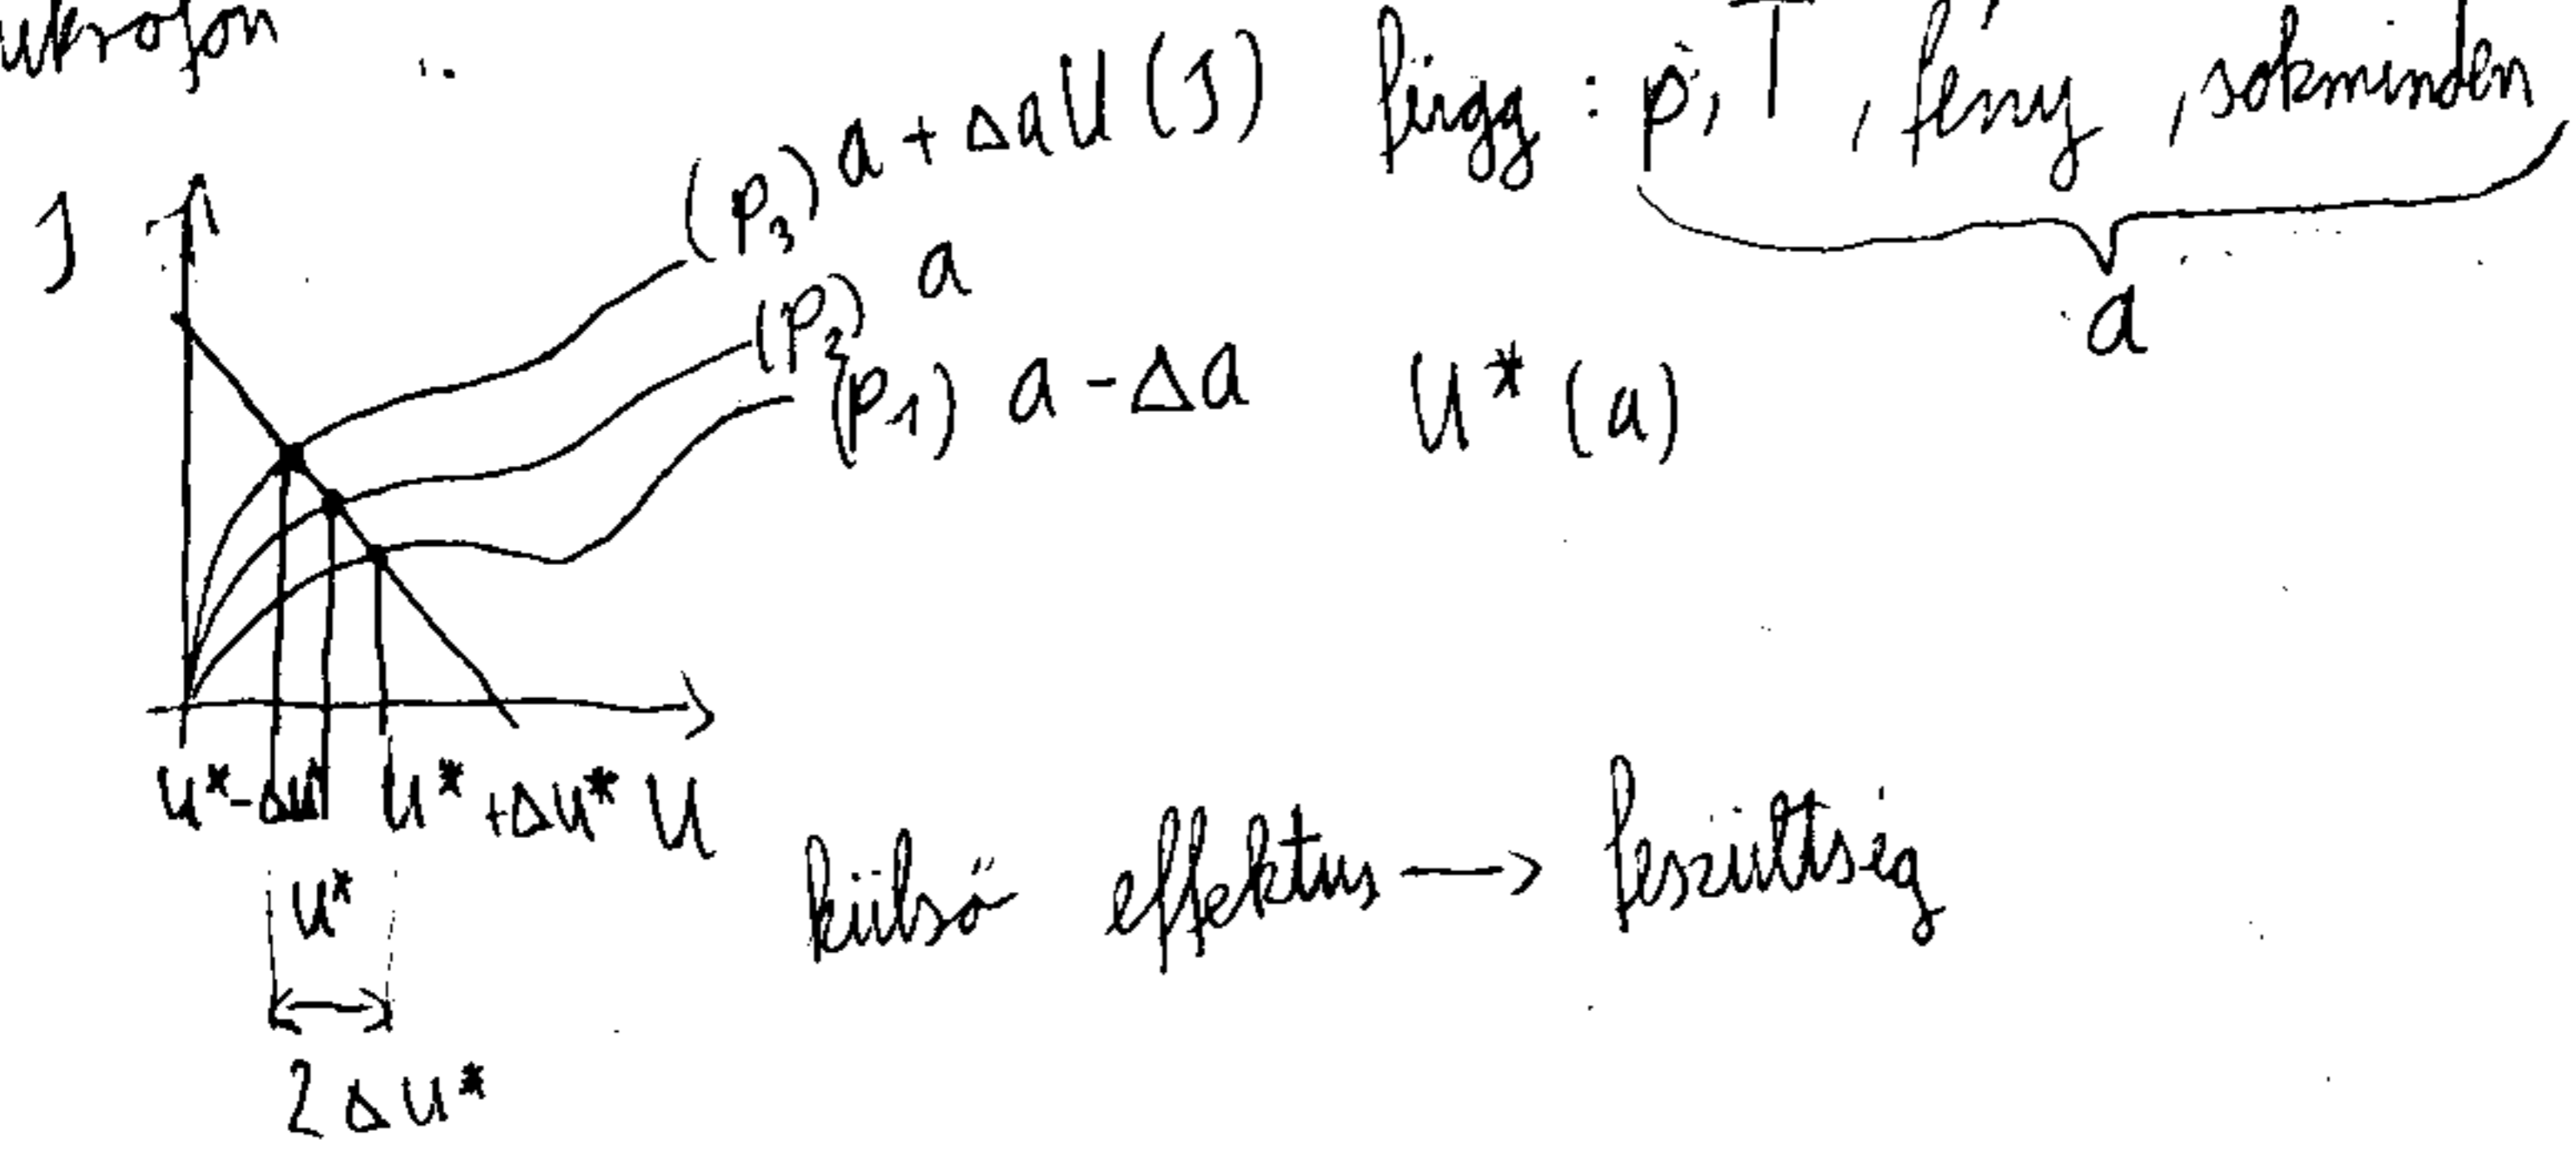 mikrofon
(p₃) a + Δa U (J) függ : p, T, fény, sokminden
J
(p₂) a
a
(p₁) a - Δa U* (a)
U* - ΔU* U* + ΔU* U
U*
külső effektus → feszültség
2ΔU*